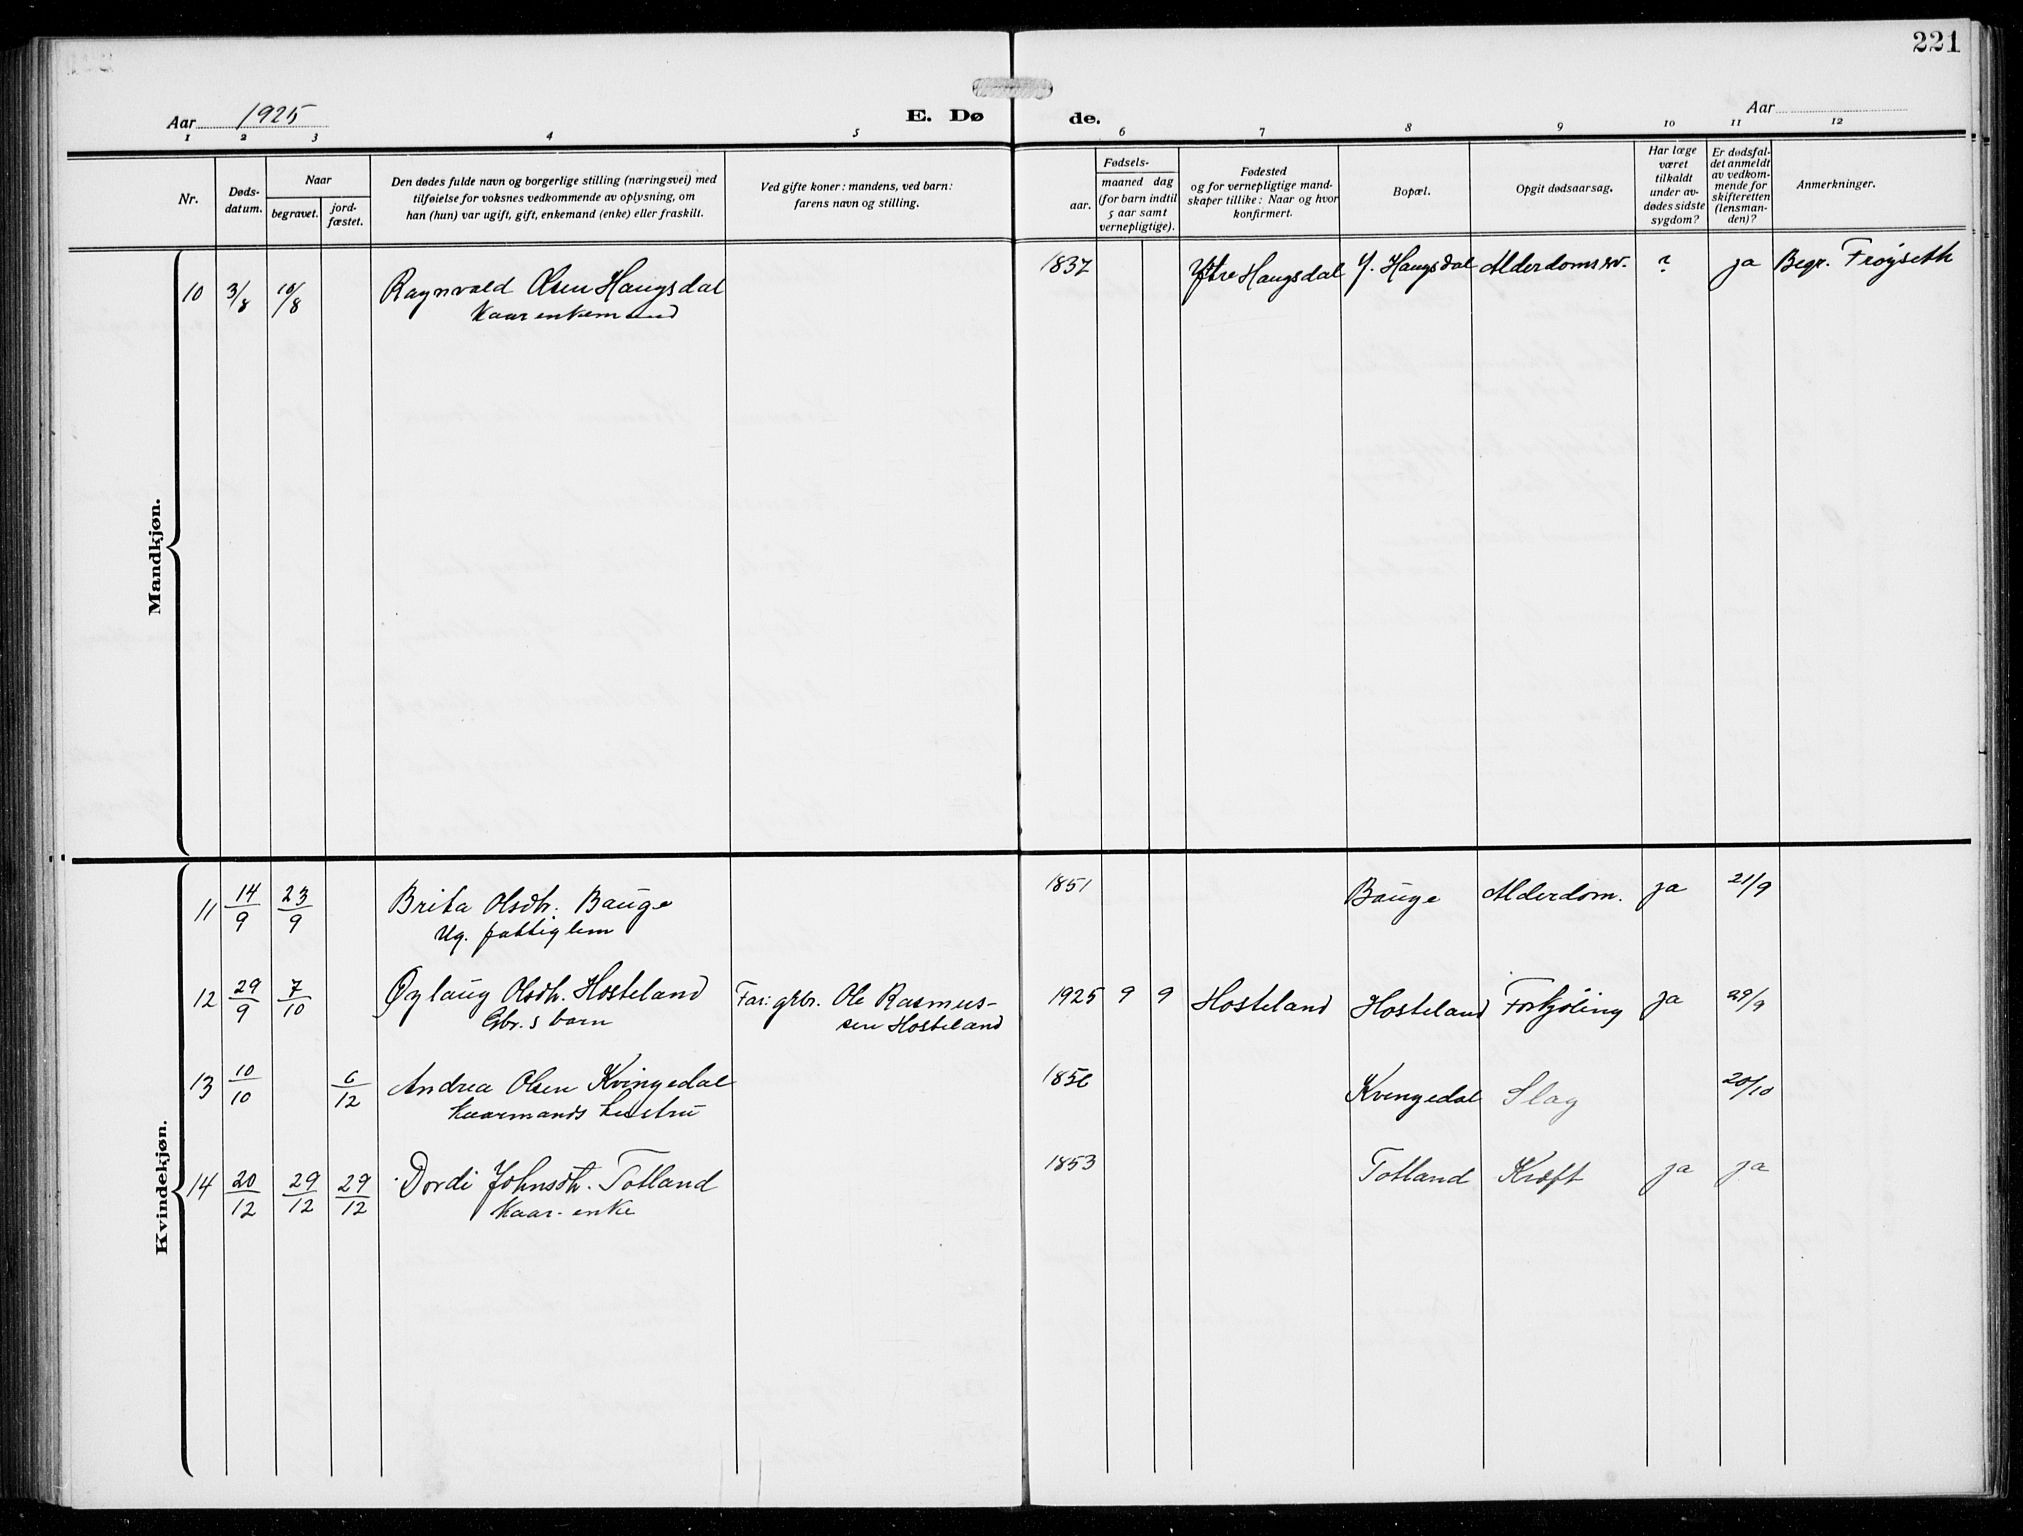 221
Aar 1925
E. Dø
de.
Aar
1 2 3 4 5 6 7 8 9 10 11 12
Nr.
Døds-
datum.
Naar
begravet.
jord-
fæstet.
Den dødes fulde navn og borgerlige stilling (næringsvei) med
tilføielse for voksnes vedkommende av oplysning, om
han (hun) var ugift, gift, enkemand (enke) eller fraskilt.
Ved gifte koner: mandens, ved barn:
farens navn og stilling.
Fødsels-
aar.
maaned dag
(for barn indtil
5 aar samt
vernepligtige).
Fødested
og for vernepligtige mand-
skaper tillike: Naar og hvor
konfirmert.
Bopæl.
Opgit dødsaarsag.
Har læge
været
tilkaldt
under av-
dødes sidste
sygdom?
Er dødsfal-
det anmeldt
av vedkom-
mende for
skifteretten
(lensman-
den)?
Anmerkninger.
Mandkjøn.
10 3/8 10/8 Ragnvald Olsen Haugsdal 1837 Ytre Haugsdal Y. Haugsdal Alderdomssv. ? ja Begr. Frøyseth
Kaarenkemand
Kvindekjøn.
11 14/9 23/9 Brita Olsdtr. Bauge 1851 Bauge Alderdom. ja 21/9
Ug. fattiglem
12 29/9 7/10 Øylaug Olsdtr. Hosteland Far: gbr. Ole Rasmus- 1925 9 9 Hosteland Hosteland Forkjöling ja 29/9
Gbr.s barn sen Hosteland
13 10/10 6/12 Andrea Olsen Kvingedal 1856 Kvingedal Slag 20/10
Kaarmands hustru
14 20/12 29/12 29/12 Dordi Johnsdtr. Totland 1853 Totland Kræft ja ja
Kaar-enke